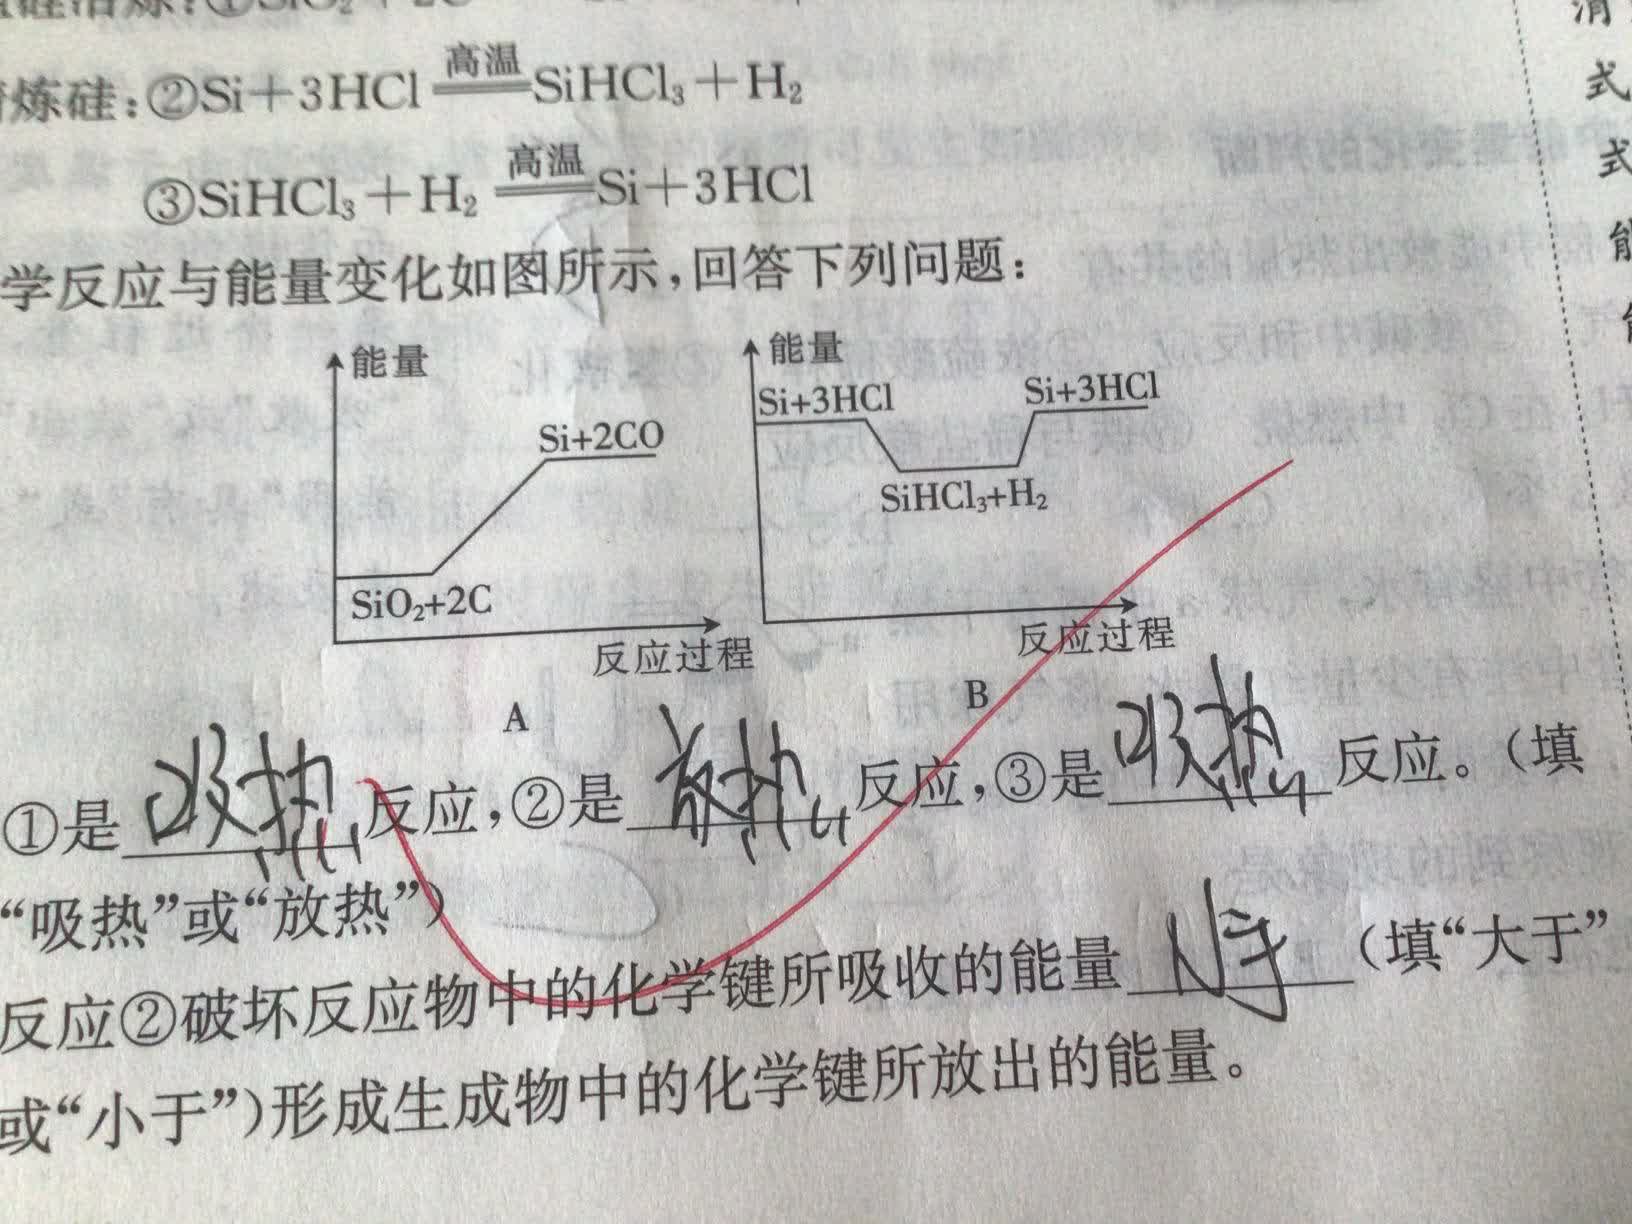 硅冶炼:①SiO₂+2C
炼硅:②Si+3HCl 高温 SiHCl₃+H₂
③SiHCl₃+H₂ 高温 Si+3HCl
学反应与能量变化如图所示,回答下列问题:
能量
Si+2CO
SiO₂+2C
反应过程
A
能量
Si+3HCl
Si+3HCl
SiHCl₃+H₂
反应过程
B
①是吸热反应,②是放热反应,③是吸热反应。(填
“吸热”或“放热”)
反应②破坏反应物中的化学键所吸收的能量小于(填“大于”
或“小于”)形成生成物中的化学键所放出的能量。
式
式
能